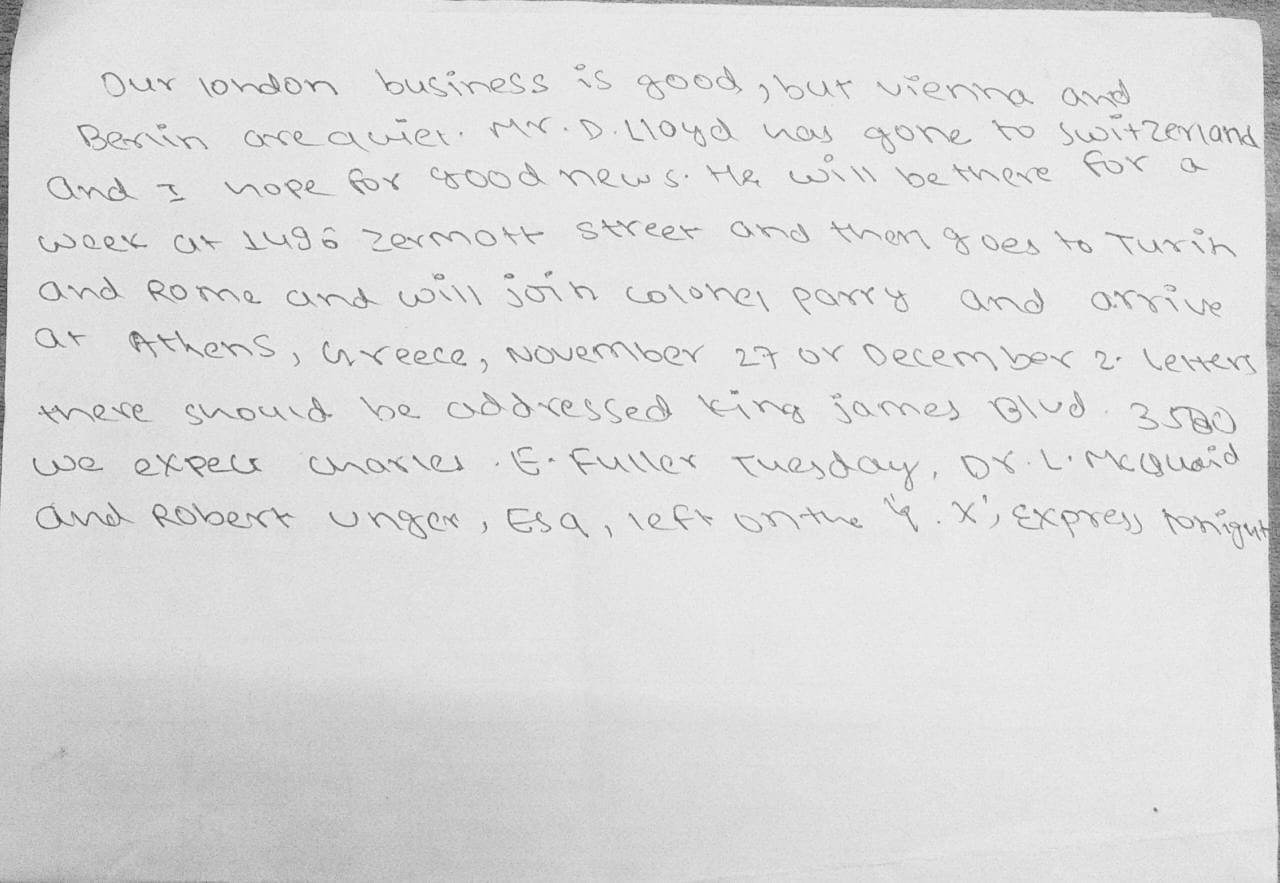 Our london business is good, but vienna and
Berlin are quiet. Mr. D. Lloyd has gone to switzerland
and I hope for good news. He will be there for a
week at 1496 zermott street and then goes to Turin
and Rome and will join colonel parry and arrive
at Athens, Greece, November 27 or December 2. letters
there should be addressed king james Blvd. 3580
we expect charles . E. Fuller Tuesday, Dr. L. McQuaid
and Robert unger, Esq, left on the "Y. X", Express tonight